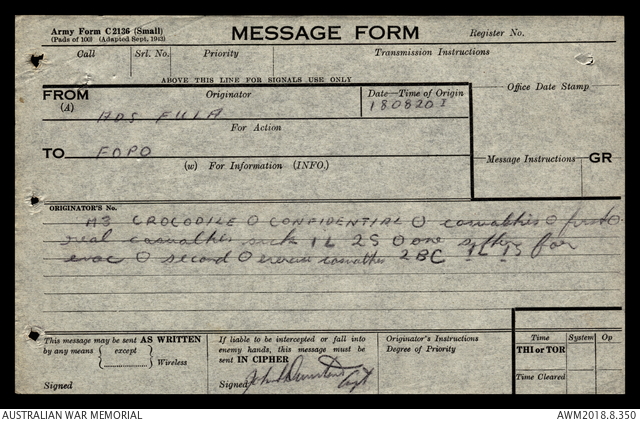 Army Form C2136 (Small)
(Pads of 100) (Adapted Sept. 1943)
MESSAGE FORM
Register No.
Call
Srl. No.
Priority
Transmission Instructions
ABOVE THIS LINE FOR SIGNALS USE ONLY
FROM
(A)
Originator
Date—Time of Origin
Office Date Stamp
ADS FUIA
180820 I
For Action
TO
FOPO
(W) For Information (INFO.)
Message Instructions
GR
ORIGINATOR'S No.
M3 CROCODILE O CONFIDENTIAL O casualties O first O
real casualties sick 1L 2S O one for
evac O second O exercise casualties 2BC 1L 1S
This message may be sent AS WRITTEN
by any means
except
Wireless
Signed
If liable to be intercepted or fall into
enemy hands, this message must be
sent IN CIPHER
Signed
Capt
Originator's Instructions
Degree of Priority
Time
System
Op
THI or TOR
Time Cleared
AUSTRALIAN WAR MEMORIAL
AWM2018.8.350